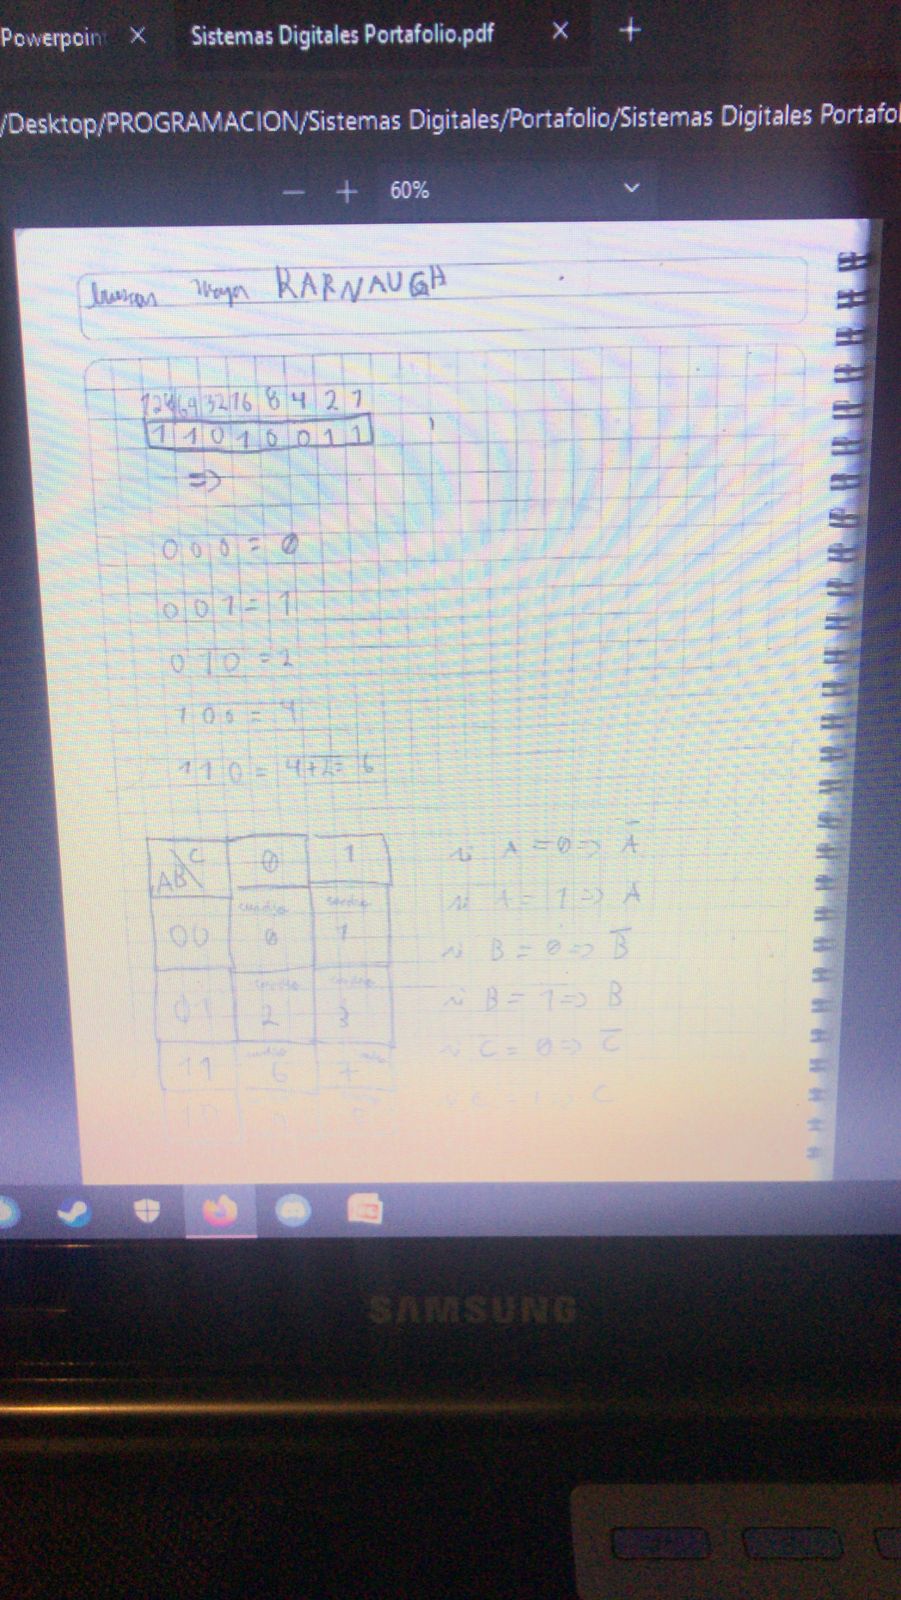 Powerpoin
Sistemas Digitales Portafolio.pdf
/Desktop/PROGRAMACION/Sistemas Digitales/Portafolio/Sistemas Digitales Portafol
60%
KARNAUGH
128 64 32 16 8 4 2 1
1 1 0 1 0 0 1 1
=>
0 0 0 = 0
0 0 1 = 1
0 1 0 = 2
1 0 0 = 4
1 1 0 = 4+2= 6
AB\C 0 1
00 0 1
01 2 3
11 6 7
10
si A = 0 => Ā
si A = 1 => A
si B = 0 => B̄
si B = 1 => B
si C = 0 => C̄
si C = 1 => C
SAMSUNG